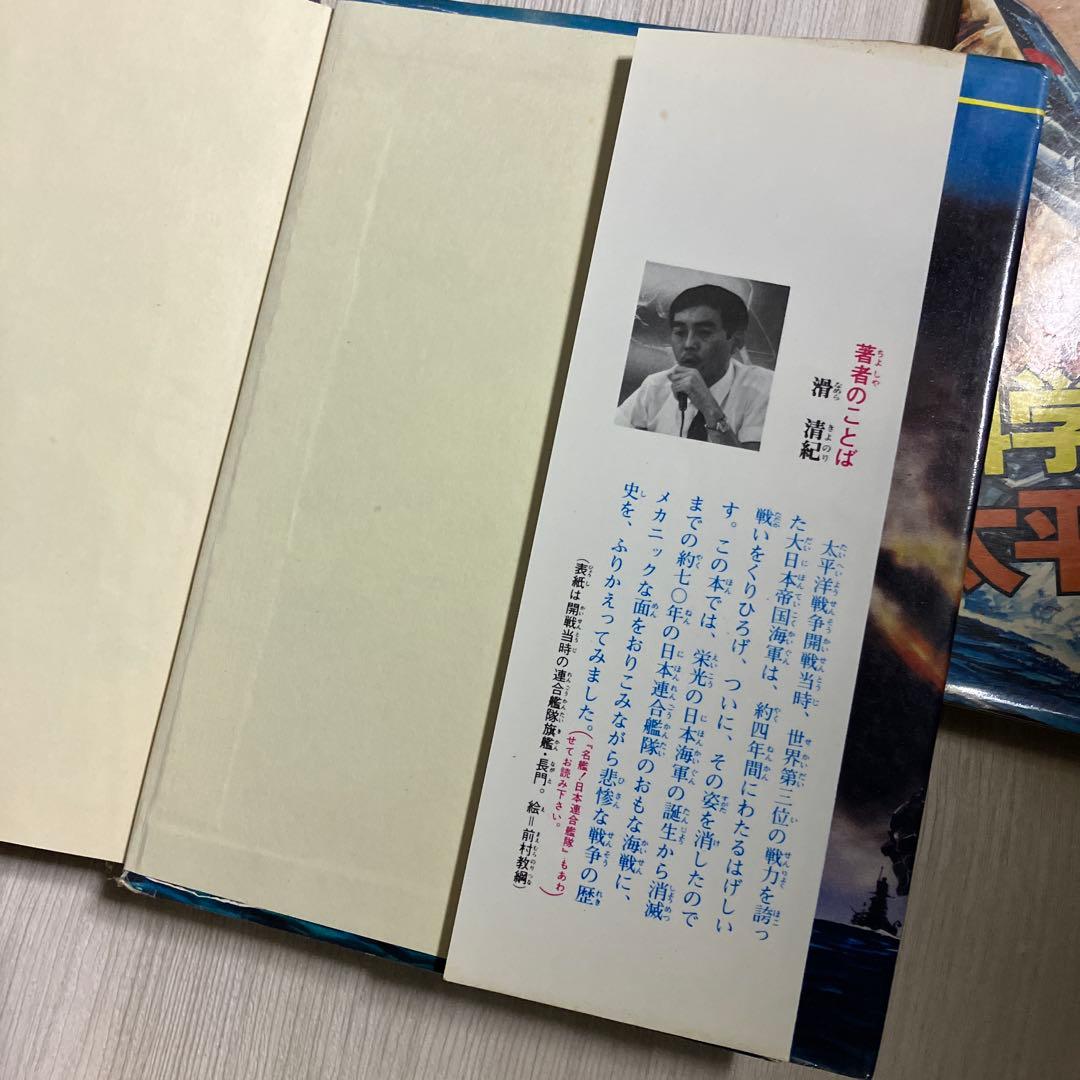 著者のことば
滑 清紀
太平洋戦争開戦当時、世界第三位の戦力を誇っ
た大日本帝国海軍は、約四年間にわたるはげしい
戦いをくりひろげ、ついに、その姿を消したので
す。この本では、栄光の日本海軍の誕生から消滅
までの約七〇年の日本連合艦隊のおもな海戦に、
メカニックな面をおりこみながら悲惨な戦争の歴
史を、ふりかえってみました。(『名艦!日本連合艦隊』もあわ
せてお読み下さい。)
(表紙は開戦当時の連合艦隊旗艦・長門。絵=前村教綱)
学
太平